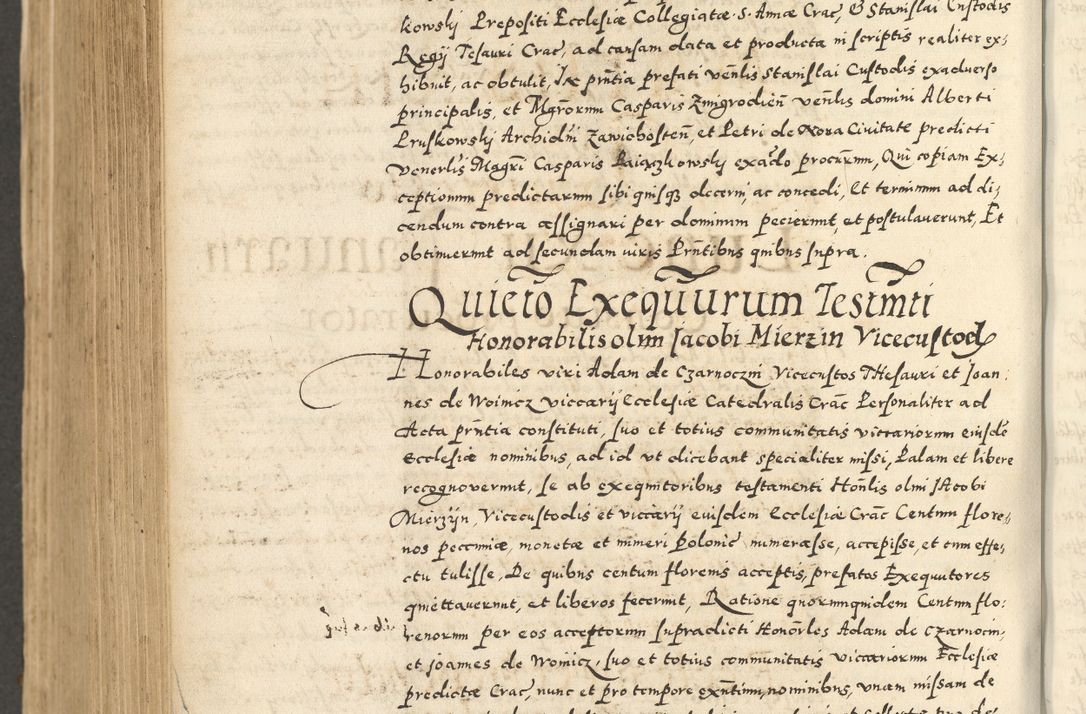 kowskij Prepositi Ecclesiæ Collegiatæ S. Annæ Crac, & Stanislai Custodis
Regij Tesauri Crac, ad causam data et producta in scriptis realiter ex,
hibuit, ac obtulit, In prntia prefati venlis Stanislai Custodis exaduerso
principalis, et Mgrorum Casparis Zmigrodien venlis domini Alberti
Pruskowskij Archidni Zawichosten, et Petri de Noua Ciuitate predicti
venerlis Magri Casparis exado procurum, Qui copiam Ex,
ceptionum predictarum sibi quisq decerni, ac concedi, Et terminum ad di,
cendum contra assignari per dominum pecierunt, et postulauerunt, Et
obtinuerunt ad secundam iuris Prntibus quibus supra.
Quietõ Exequũurum Testm̃ti
Honorabilis olim Jacobi Mierzin Vicecustod
Honorabiles viri Adam de Czarnoczin Vicecustos THesauri et Joan,
nes de Woinicz viccarij Ecclesiæ Catedralis Crac Personaliter ad
Acta prntia constituti, suo et totius communitatis viccariorum eiusde
Ecclesiæ nominibus, ad id vt dicebant specialiter missi, Palam et libere
recognoverunt, se ab exequitoribus testamenti Honlis olmi JAcobi
Mierzijn, Vicecustodis et viccarij euisdem Ecclesiæ Crac Centum flore,
nos pecuniæ, monetæ et numeri Polonic numerasse, accepisse, et cum effe,
ctu tulisse, De quibus centum florenis acceptis, prefatos Exequutores
quiettauerunt, et liberos fecerunt, Ratione quorumquidem Centum flo,
renorum per eos acceptorum supradicti Honorles Adam de Czarnocin,
et Joannes de Woinicz, suo et totius communitatis viccariorum Ecclesiæ
predictæ Crac, nunc et pro tempore exntium, nominibus, vnam missam de